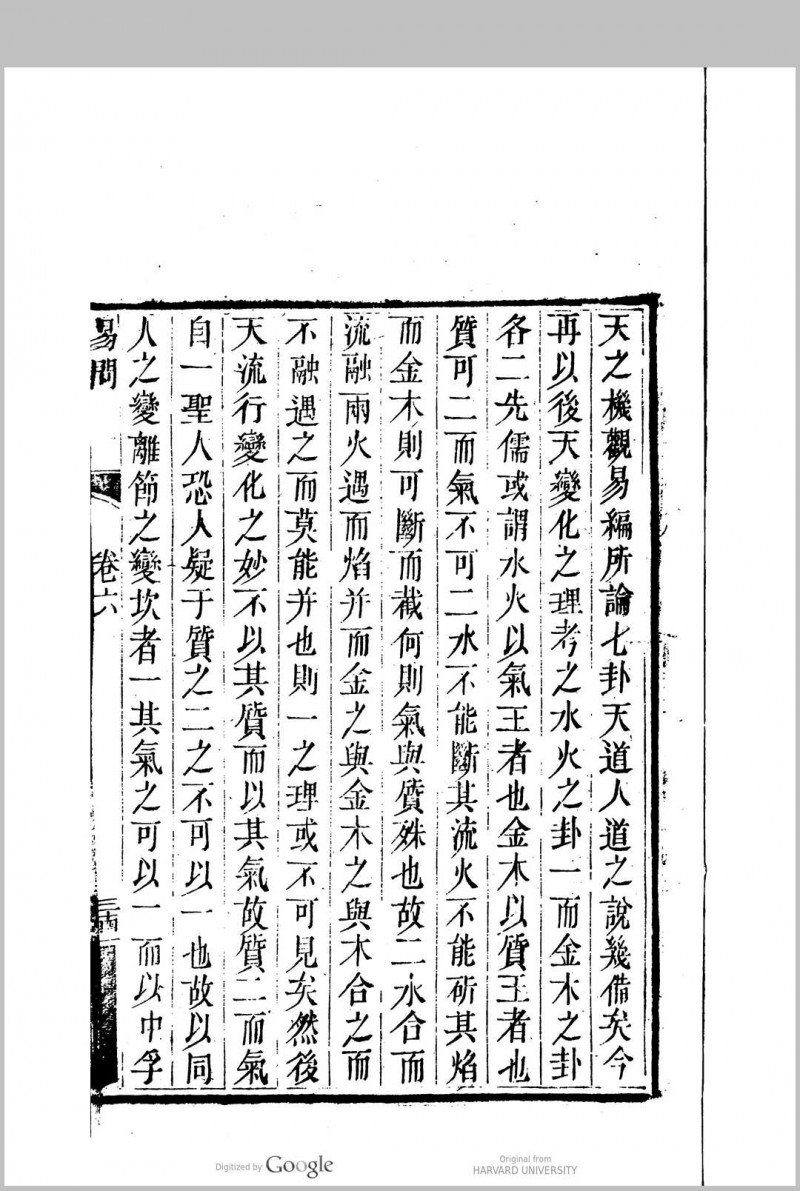 天之機觀易編所論七卦天道人道之說幾備矣今
再以後天變化之理考之水火之卦一而金木之卦
各二先儒或謂水火以氣王者也金木以質王者也
質可二而氣不可二水不能斷其流火不能斫其焰
而金木則可斷而截何則氣與質殊也故二水合而
流融兩火遇而焰并而金之與金木之與木合之而
不融遇之而莫能并也則一之理或不可見矣然後
天流行變化之妙不以其質而以其氣故質二而氣
自一聖人恐人疑于質之二之不可以一也故以同
人之變離節之變坎者一其氣之可以一而以中孚
易問
卷六
三十四
Digitized by Google
Original from
HARVARD UNIVERSITY